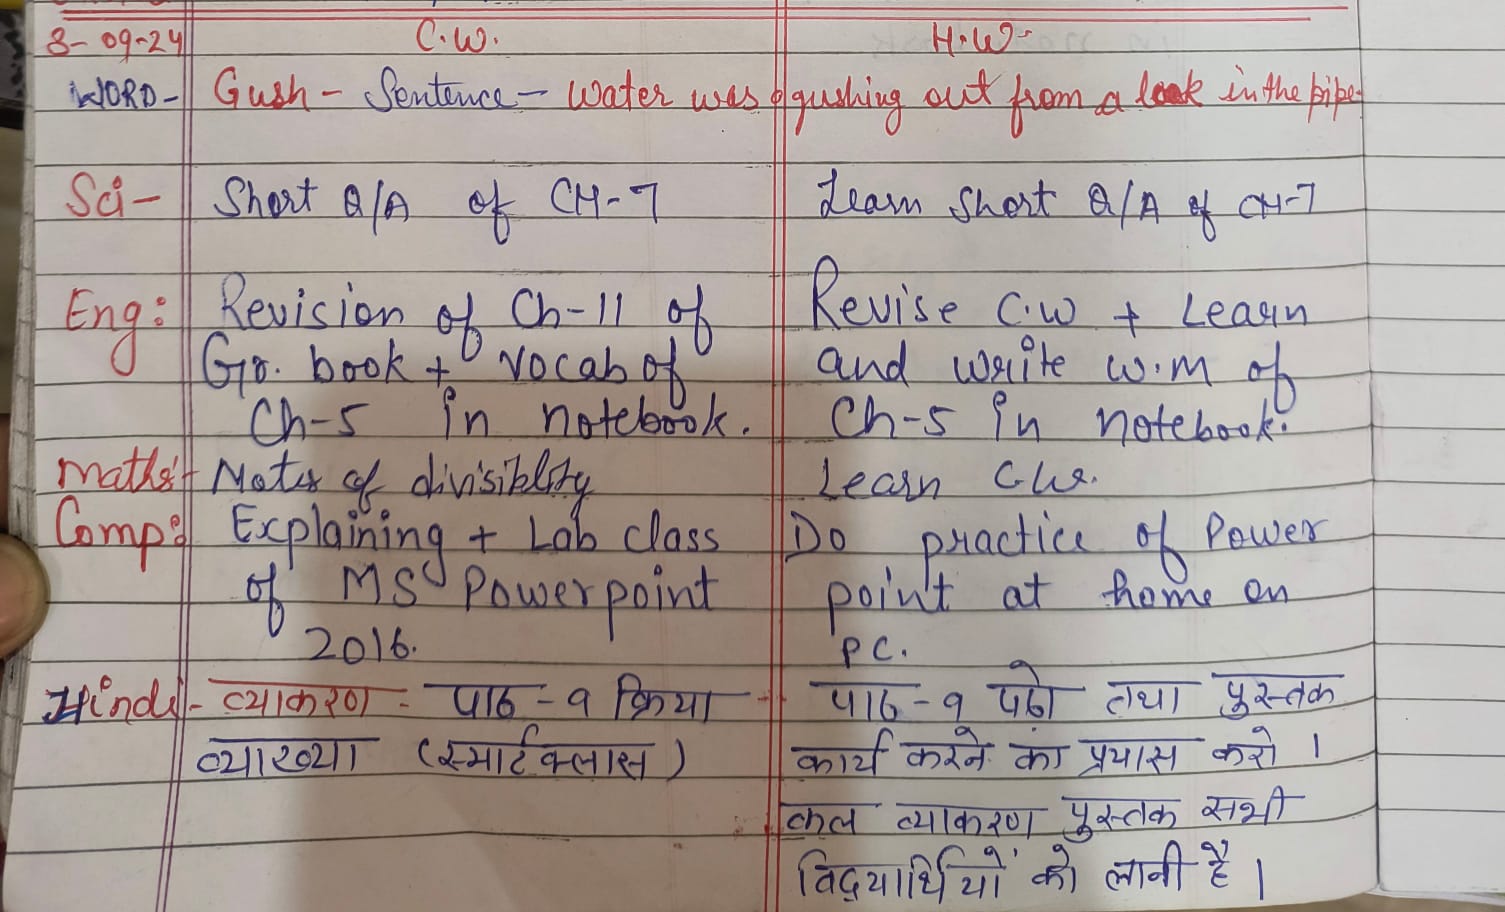 3-09-24 C.W. H.W-
WORD- Gush - Sentence - Water was gushing out from a leak in the pipe.
Sci- Short Q/A of CH-7 Learn Short Q/A of CH-7
Eng: Revision of Ch-11 of Revise C.W + Learn
Gr. book + vocab of and write W.M of
Ch-5 in notebook. Ch-5 in notebook.
Maths- Notes of divisiblity Learn C.W.
Comp: Explaining + Lab class Do practice of Power
of MS Powerpoint point at home on
2016. PC.
Hindi- व्याकरण - पाठ-९ क्रिया पाठ-९ पढो तथा पुस्तक
व्याख्या (स्मार्ट क्लास) कार्य करने का प्रयास करो ।
कल व्याकरण पुस्तक सभी
विद्यार्थियों को लानी है ।